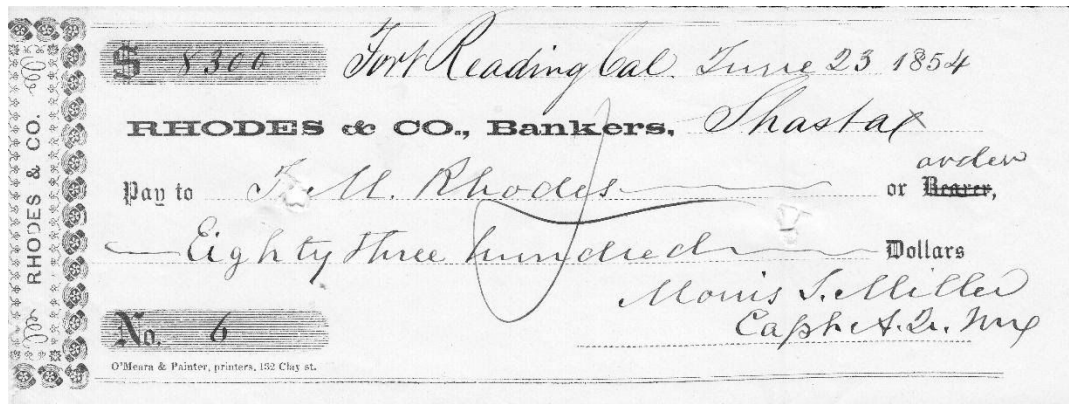 RHODES & CO.
$ 8300 Fort Reading Cal. June 23 1854
RHODES & CO., Bankers, Shasta
order
Pay to F. M. Rhodes or Bearer,
Eighty three hundred Dollars
Morris S. Miller
Capt. A. Q. M.
No. 6
O'Meara & Painter, printers, 132 Clay st.